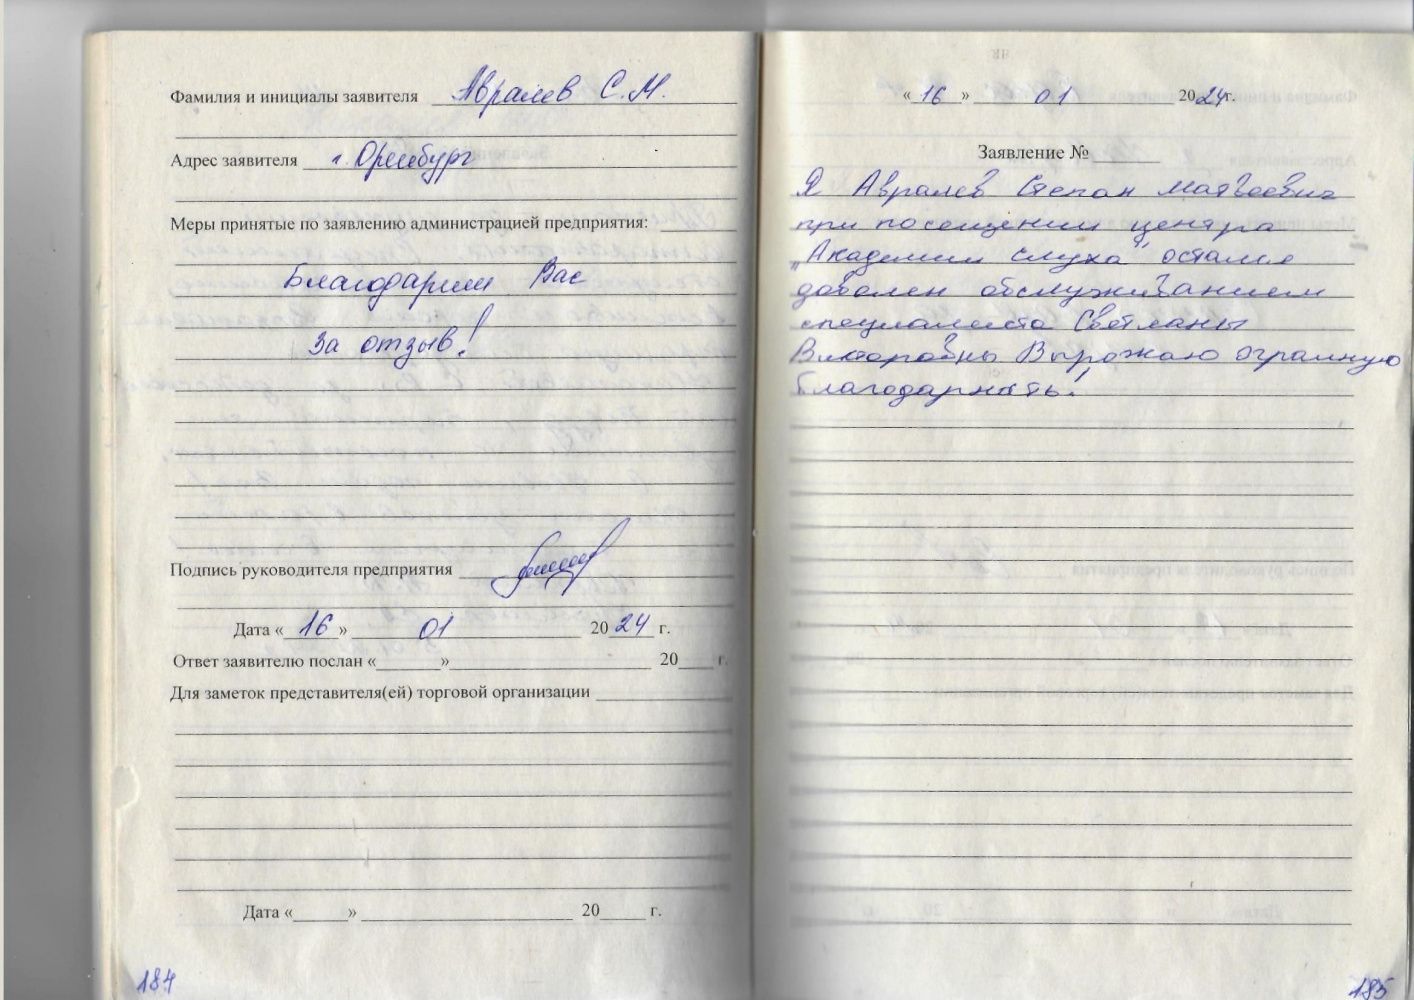 Фамилия и инициалы заявителя Авралев С.М.
Адрес заявителя г. Оренбург
Меры принятые по заявлению администрацией предприятия:
Благодарим Вас
за отзыв!
Подпись руководителя предприятия
Дата «16» 01 2024 г.
Ответ заявителю послан «______» 20___ г.
Для заметок представителя(ей) торговой организации
Дата «______» 20___ г.
184
«16» 01 2024г.
Заявление №
Я Авралев Степан Матвеевич
при посещении центра
"Академии слуха" остался
доволен обслуживанием
специалиста Светланы
Викторовны Выражаю огромную
благодарность!
185